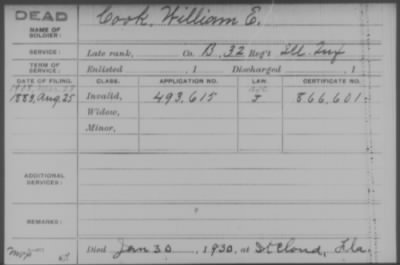 DEAD
NAME OF SOLDIER: Cook, William E.
SERVICE: Late rank, Co. B, 32 Reg't Ill. Inf
TERM OF SERVICE: Enlisted , 1 Discharged , 1
DATE OF FILING. CLASS. APPLICATION NO. LAW. CERTIFICATE NO.
1883, Aug. 25 Invalid, 493,615 J 866,601
Widow,
Minor,
ADDITIONAL SERVICES:
REMARKS:
Died Jan 30 , 1930, at St Cloud, Fla.